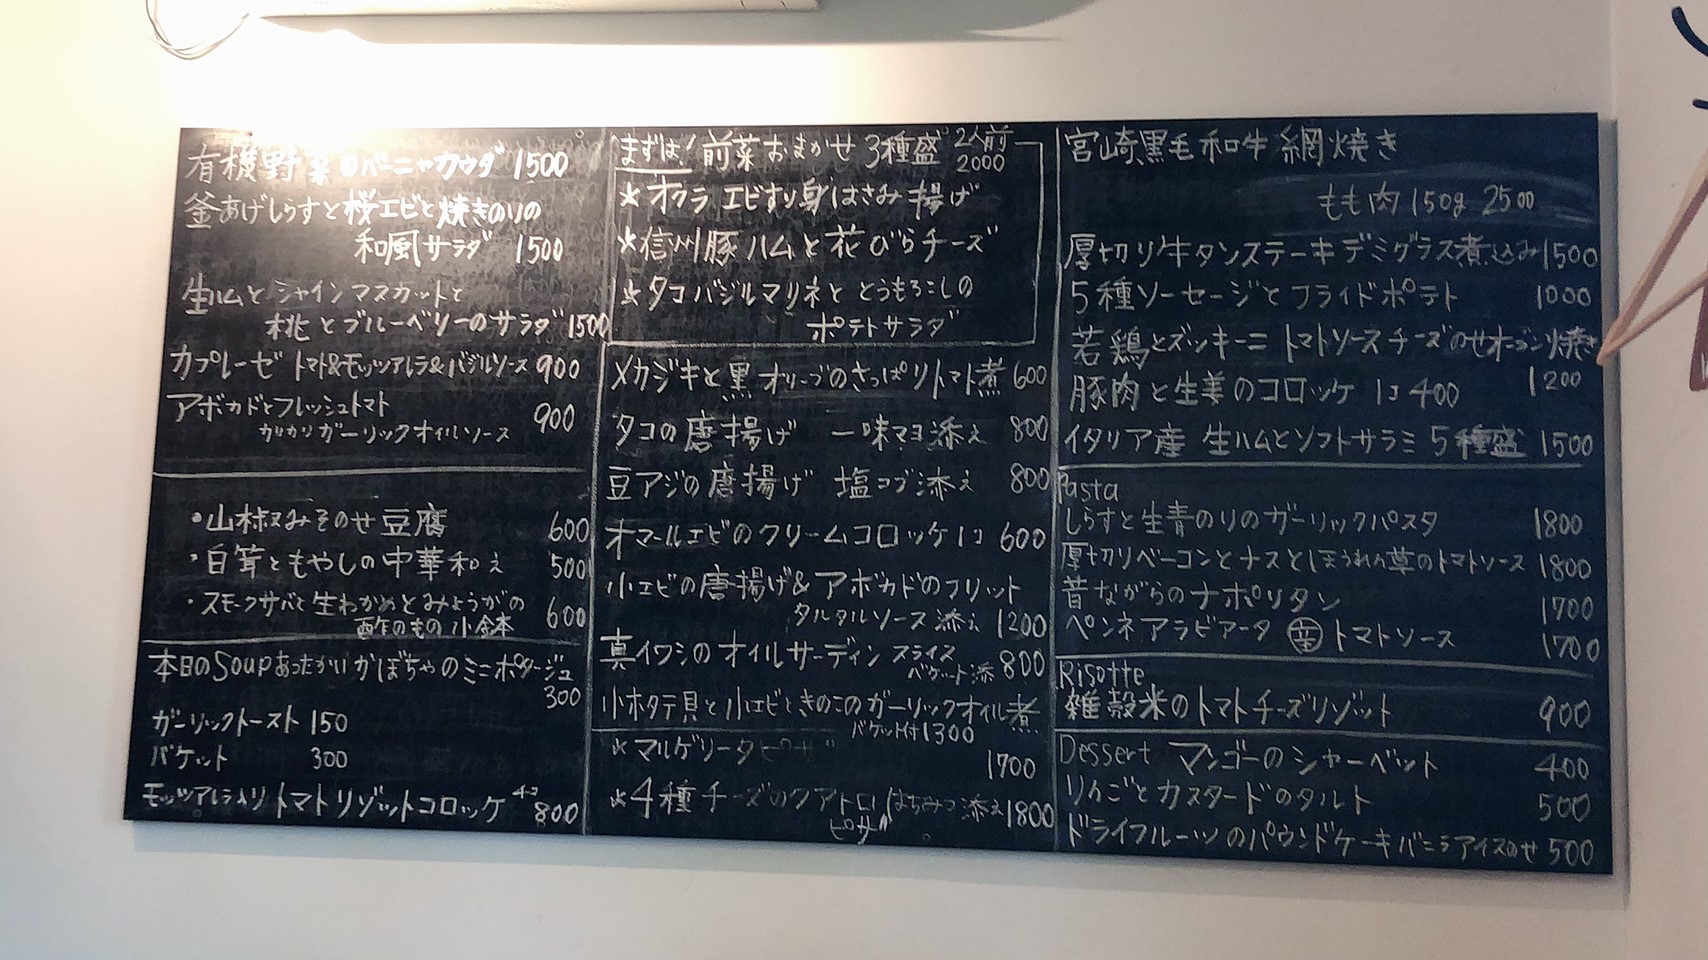 有機野菜のバーニャカウダ 1500
釜あげしらすと桜エビと焼きのりの
和風サラダ 1500
生ハムとシャインマスカットと
桃とブルーベリーのサラダ 1500
カプレーゼ トマト&モッツアレラ&バジルソース 900
アボカドとフレッシュトマト
カリカリガーリックオイルソース 900
・山椒みそのせ豆腐 600
・白茸ともやしの中華和え 500
・スモークサバと生わかめとみょうがの
酢のもの 小鉢 600
本日のSoup あったかいかぼちゃのミニポタージュ
300
ガーリックトースト 150
バケット 300
モッツアレラ入りトマトリゾットコロッケ 4コ 800
まずは! 前菜おまかせ3種盛 2人前
2000
★オクラエビすり身はさみ揚げ
★信州豚ハムと花びらチーズ
★タコバジルマリネととうもろこしの
ポテトサラダ
メカジキと黒オリーブのさっぱりトマト煮 600
タコの唐揚げ 一味マヨ添え 800
豆アジの唐揚げ 塩コブ添え 800
オマールエビのクリームコロッケ1コ 600
小エビの唐揚げ&アボカドのフリット
タルタルソース添え 1200
真イワシのオイルサーディン スライス
バゲット添 800
小ホタテ貝と小エビときのこのガーリックオイル煮
バケット付 1300
★マルゲリータピザ
1700
★4種チーズのクアトロ はちみつ添え 1800
ピザ
宮崎黒毛和牛網焼き
もも肉150g 2500
厚切り牛タンステーキデミグラス煮込み 1500
5種ソーセージとフライドポテト 1000
若鶏とズッキーニ トマトソースチーズのせオーブン焼き
1200
豚肉と生姜のコロッケ 1コ 400
イタリア産 生ハムとソフトサラミ 5種盛 1500
Pasta
しらすと生青のりのガーリックパスタ 1800
厚切りベーコンとナスとほうれん草のトマトソース 1800
昔ながらのナポリタン 1700
ペンネアラビアータ 辛 トマトソース 1700
Risotte
雑穀米のトマトチーズリゾット 900
Dessert マンゴーのシャーベット 400
りんごとカスタードのタルト 500
ドライフルーツのパウンドケーキバニラアイスのせ 500